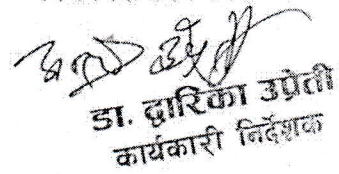 डा. द्वारिका उप्रेती
कार्यकारी निर्देशक